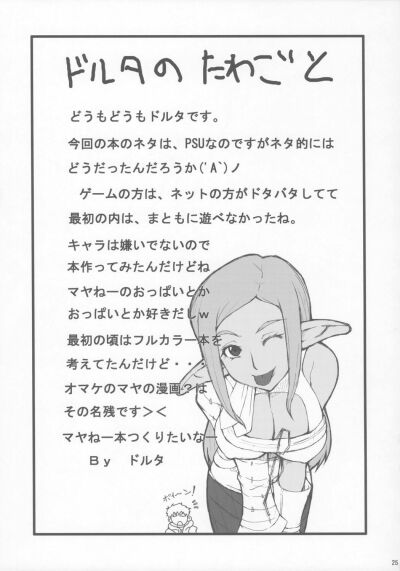 ドルタの たわごと
どうもどうもドルタです。
今回の本のネタは、PSUなのですがネタ的には
どうだったんだろうか('A`)ノ
ゲームの方は、ネットの方がドタバタしてて
最初の内は、まともに遊べなかったね。
キャラは嫌いでないので
本作ってみたんだけどね
マヤねーのおっぱいとか
おっぱいとか好きだしw
最初の頃はフルカラー本を
考えてたんだけど・・・
オマケのマヤの漫画？は
その名残です＞＜
マヤねー本つくりたいなー
By ドルタ
ボイーン!
25